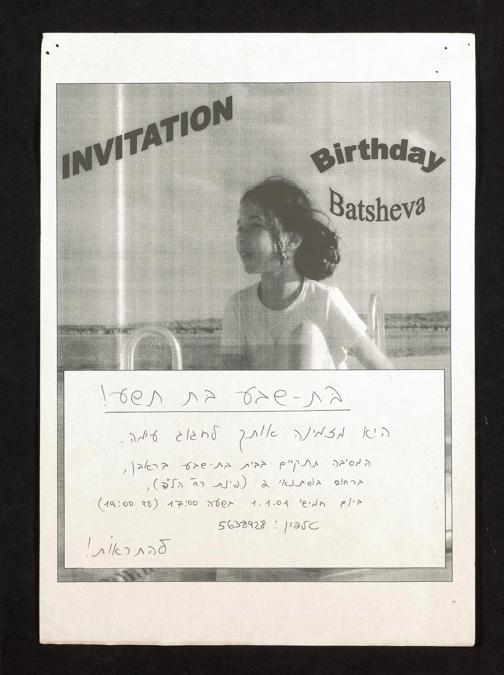 INVITATION
Birthday
Batsheva
בת-שבע בת תשע!
היא מזמינה אותך לחגוג עימה.
המסיבה תתקיים בבית בת-שבע בראבן,
ברחוב בוסתנאי 2 (פינת רח' הל"פ),
ביום חמישי 1.1.09 בשעה 17:00 (עד 19:00)
טלפון: 5638928
להתראות!